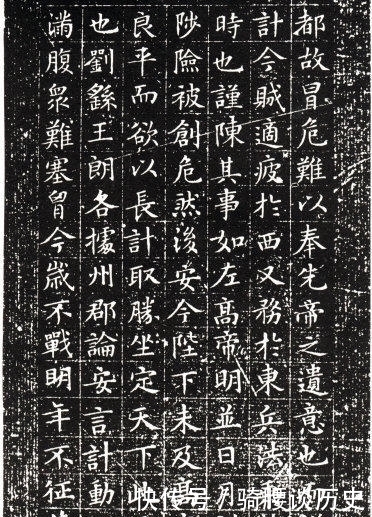 都故冒危難以奉先帝之遺意也
計今賊適疲於西又務於東兵法乘
時也謹陳其事如左高帝明並日月
陟險被創危然後安今陛下未及高
良平而欲以長計取勝坐定天下此
也劉繇王朗各據州郡論安言計動
滿腹眾難塞胷今歲不戰明年不征
快传号/骑楼谈历史